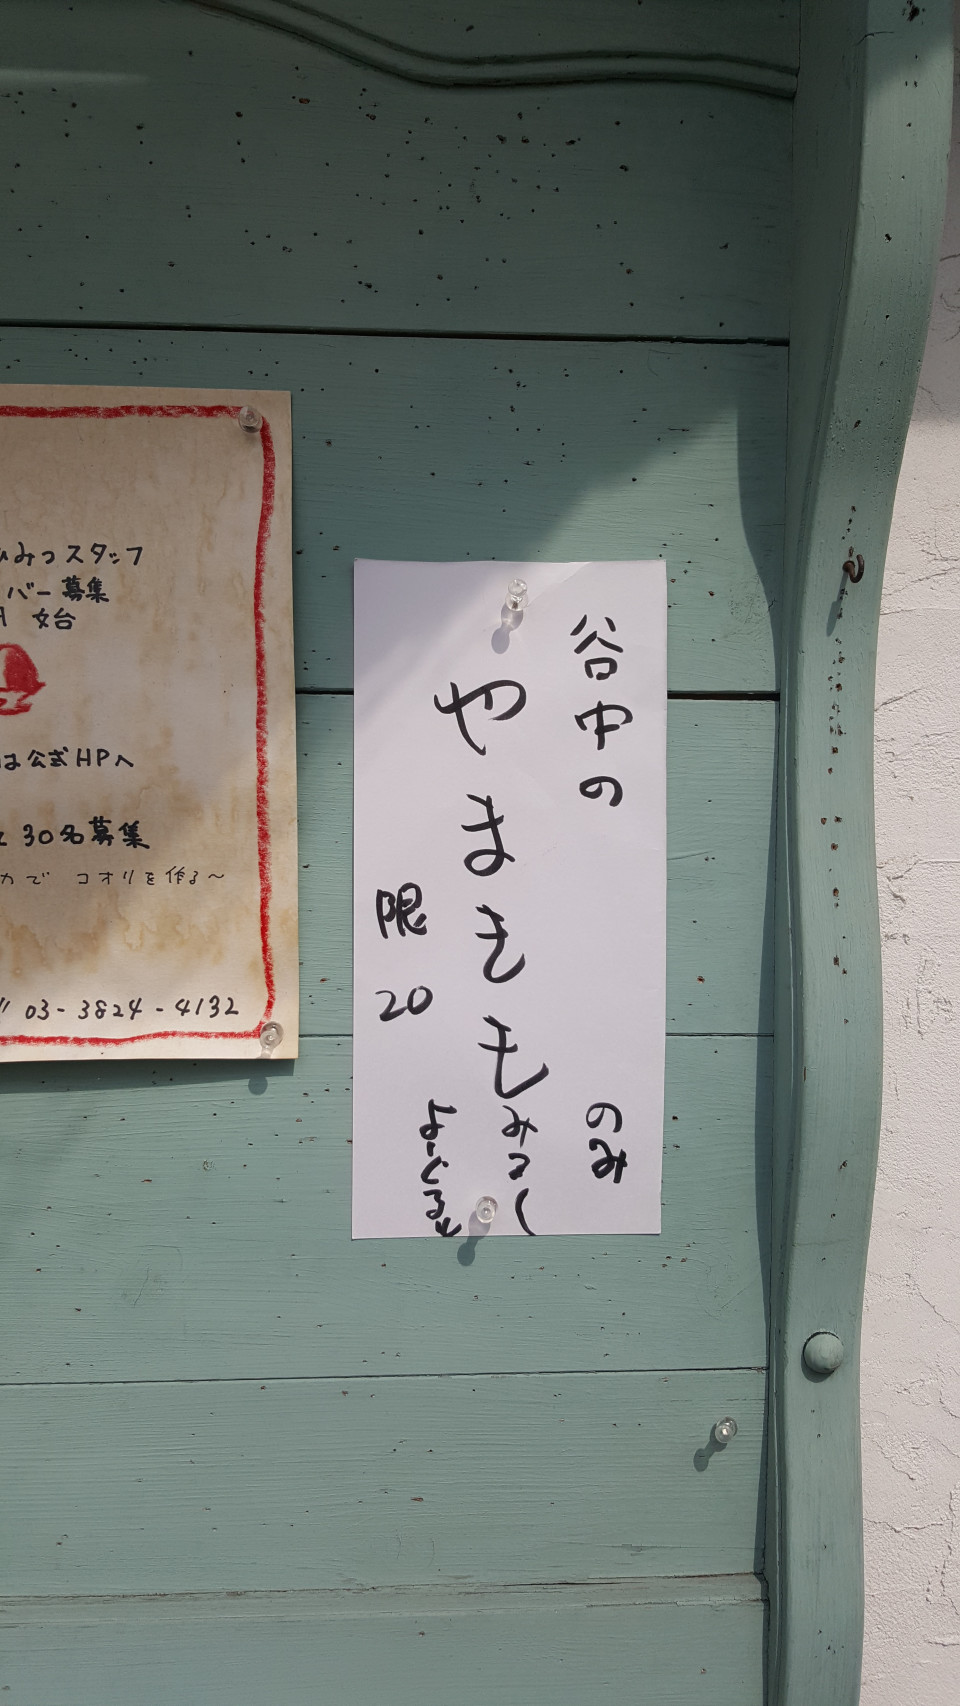 ひみつスタッフ
バー募集
は公式HPへ
30名募集
力で コオリを作る〜
03-3824-4132
谷中の
のみ
やまもも
みるく
よーぐると
限20